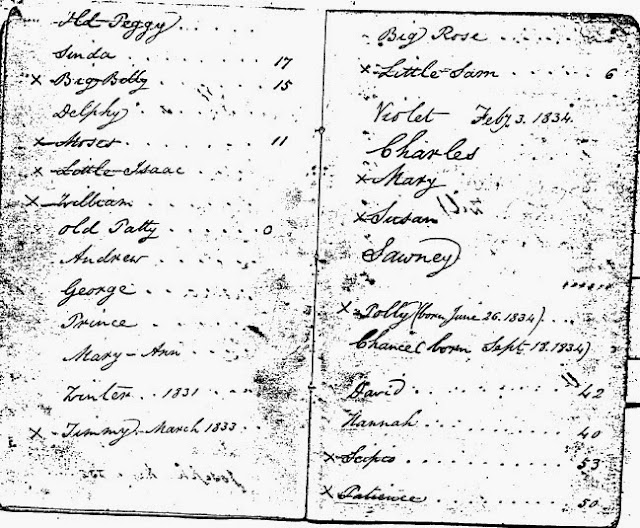 Old Peggy . . . .
Sinda . . . . . . . 17
x Big Betty . . . . . . 15
Delphy . . . . . .
x Moses . . . . . . 11
x Little Isaac . . . .
x William . . . . . .
Old Patty . . . . . . 0
Andrew . . . . .
George . . . . . .
Prince . . . . .
Mary-Ann . . . .
Winter . . 1831 . . . .
x Jimmy. March 1833 . .
Big Rose . . . . .
x Little Sam . . . . . 6
Violet Feby. 3. 1834.
Charles
x Mary
x Susan
Sawney
x Polly (born June 26. 1834) . . .
Chance (born Sept. 18. 1834)
David . . . . . . . . 42
Hannah . . . . . . . 40
x Scipio . . . . . . . . 53
x Patience . . . . . . . 50